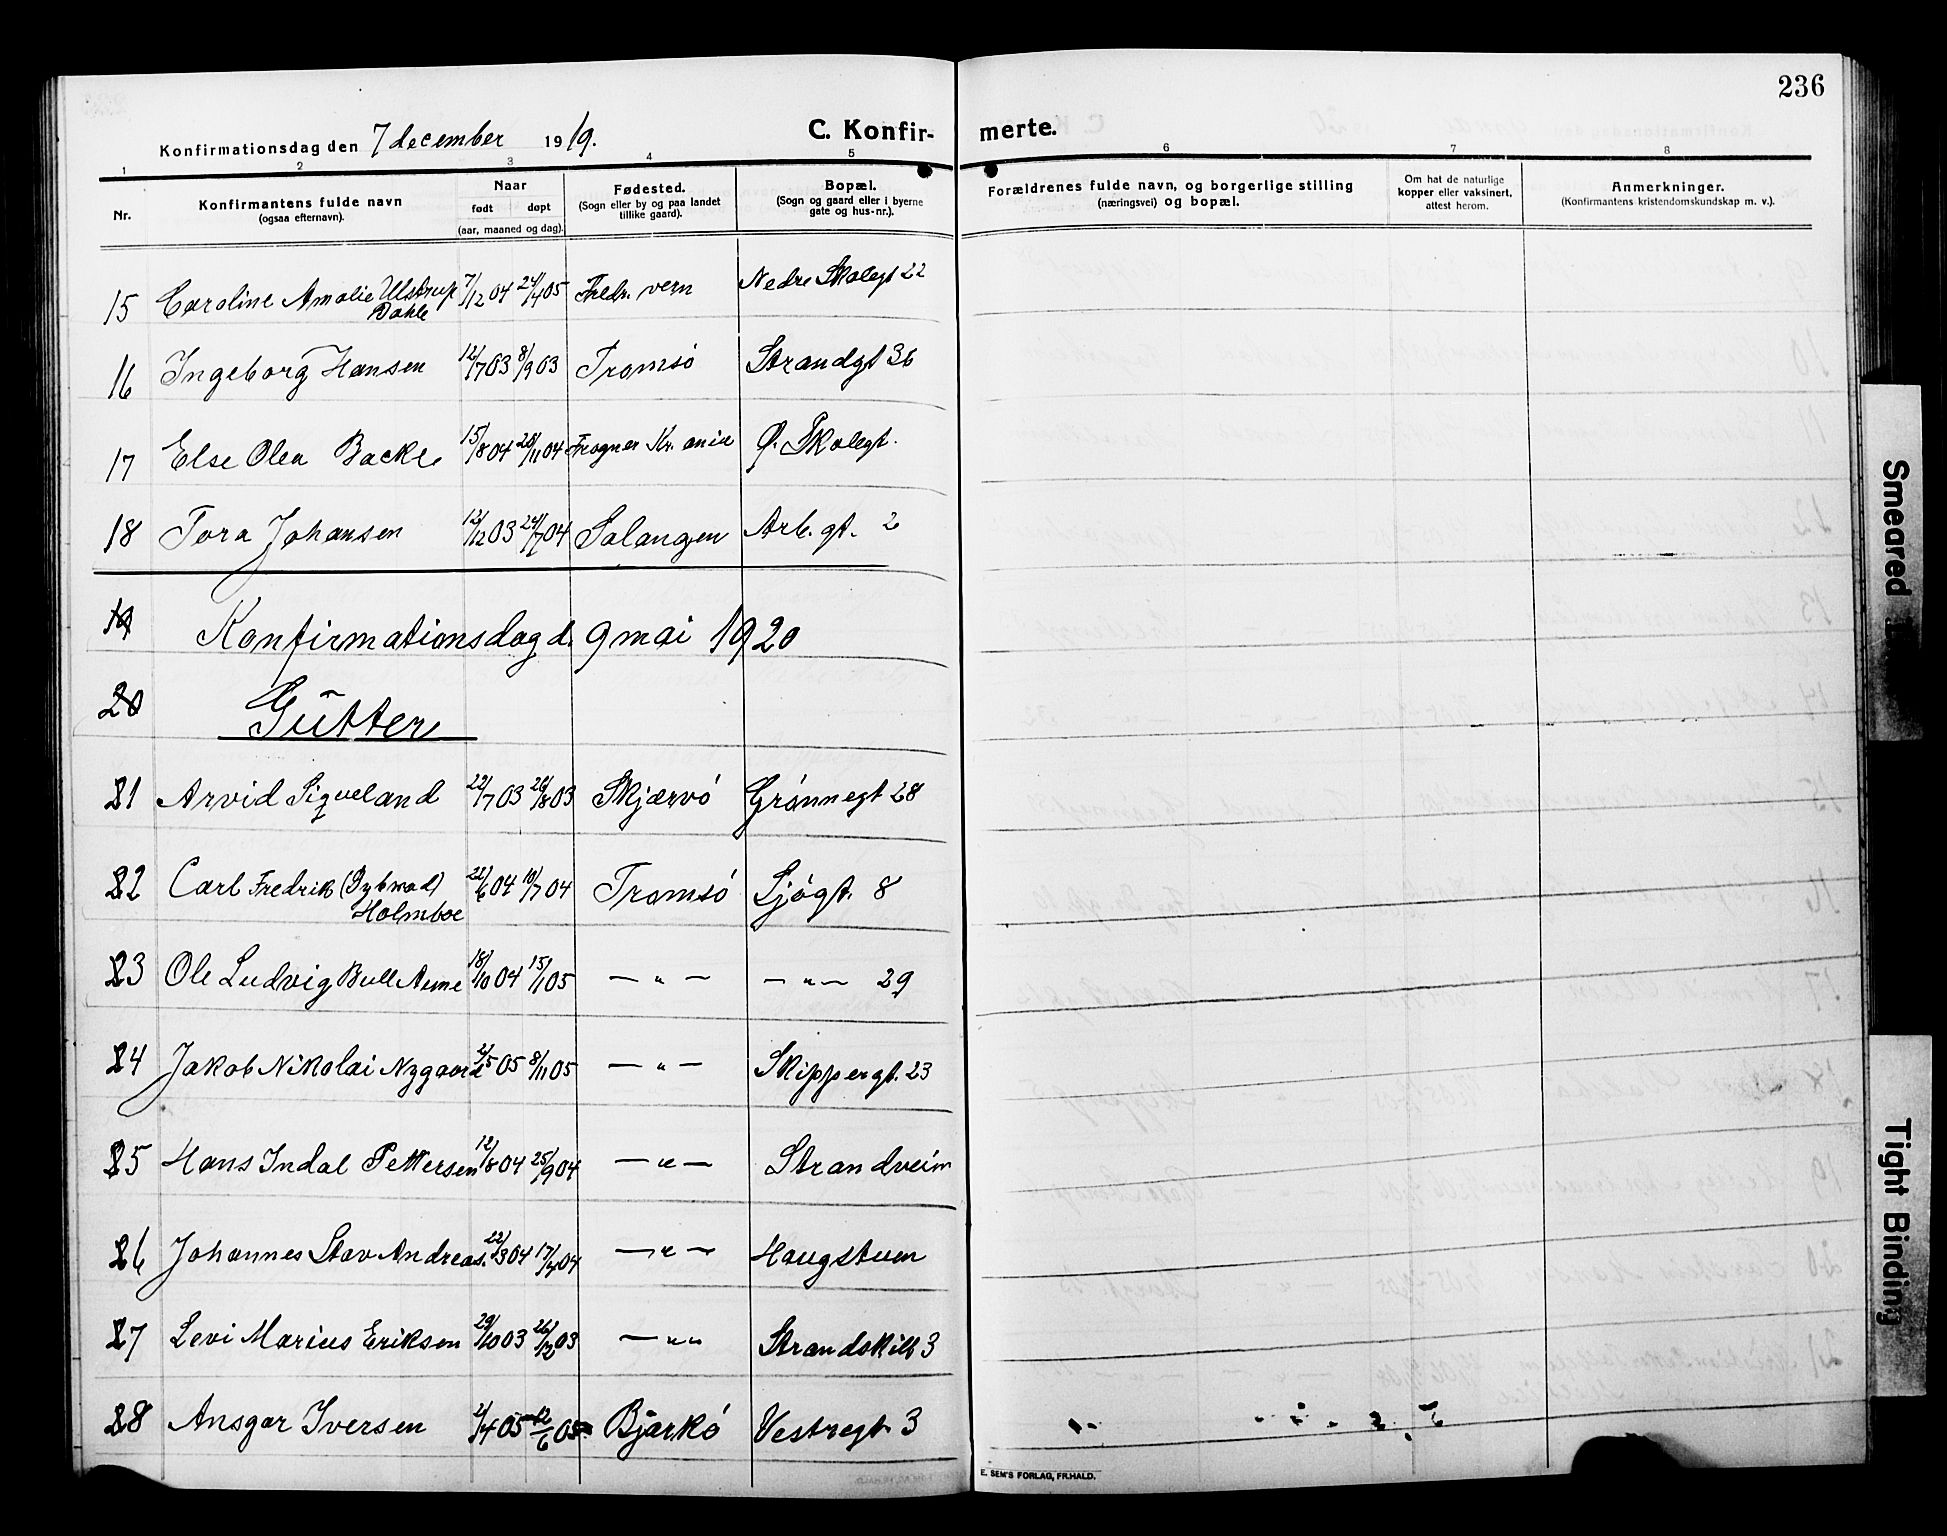 236
Konfirmationsdag den 7 december 1919.
C. Konfir- merte.
1 2 3 4 5 6 7 8
Nr.
Konfirmantens fulde navn
(ogsaa efternavn).
Naar
født døpt
(aar, maaned og dag).
Fødested.
(Sogn eller by og paa landet
tillike gaard).
Bopæl.
(Sogn og gaard eller i byerne
gate og hus-nr.).
Forældrenes fulde navn, og borgerlige stilling
(næringsvei) og bopæl.
Om hat de naturlige
kopper eller vaksinert,
attest herom.
Anmerkninger.
(Konfirmantens kristendomskundskap m. v.).
15 Caroline Amalie Ulstrup Dahle 7/12 04 24/4 05 Fredr. vern Nedre Skolegt 22
16 Ingeborg Hansen 12/7 03 8/9 03 Tromsö Strandgt 36
17 Else Olea Backe 15/8 04 20/11 04 Frogner Kr. ania Ø. Skolegt.
18 Tora Johansen 12/12 03 24/7 04 Salangen Arb. gt. 2
19 Konfirmationsdag d. 9 mai 1920
20 Gutter
21 Arvid Siqveland 22/7 03 20/8 03 Skjærvö Grönnegt 28
22 Carl Fredrik (Dybwad) Holmboe 22/6 04 10/7 04 Tromsö Sjögt. 8
23 Ole Ludvig Bull Aune 18/10 04 15/1 05 — „ — — „ — 29
24 Jakob Nikolai Nygaard 2/5 05 8/11 05 — „ — Skippergt. 23
25 Hans Indal Pettersen 12/8 04 25/9 04 — „ — Strandveien
26 Johannes Stav Andreas. 22/3 04 17/4 04 — „ — Haugstuen
27 Levi Marius Eriksen 29/10 03 26/12 03 — „ „ Strandskill 3
28 Ansgar Iversen 2/4 05 12/6 05 Bjarkö Vestregt. 3
E. SEM'S FORLAG, FR.HALD.
Smeared
Tight Binding